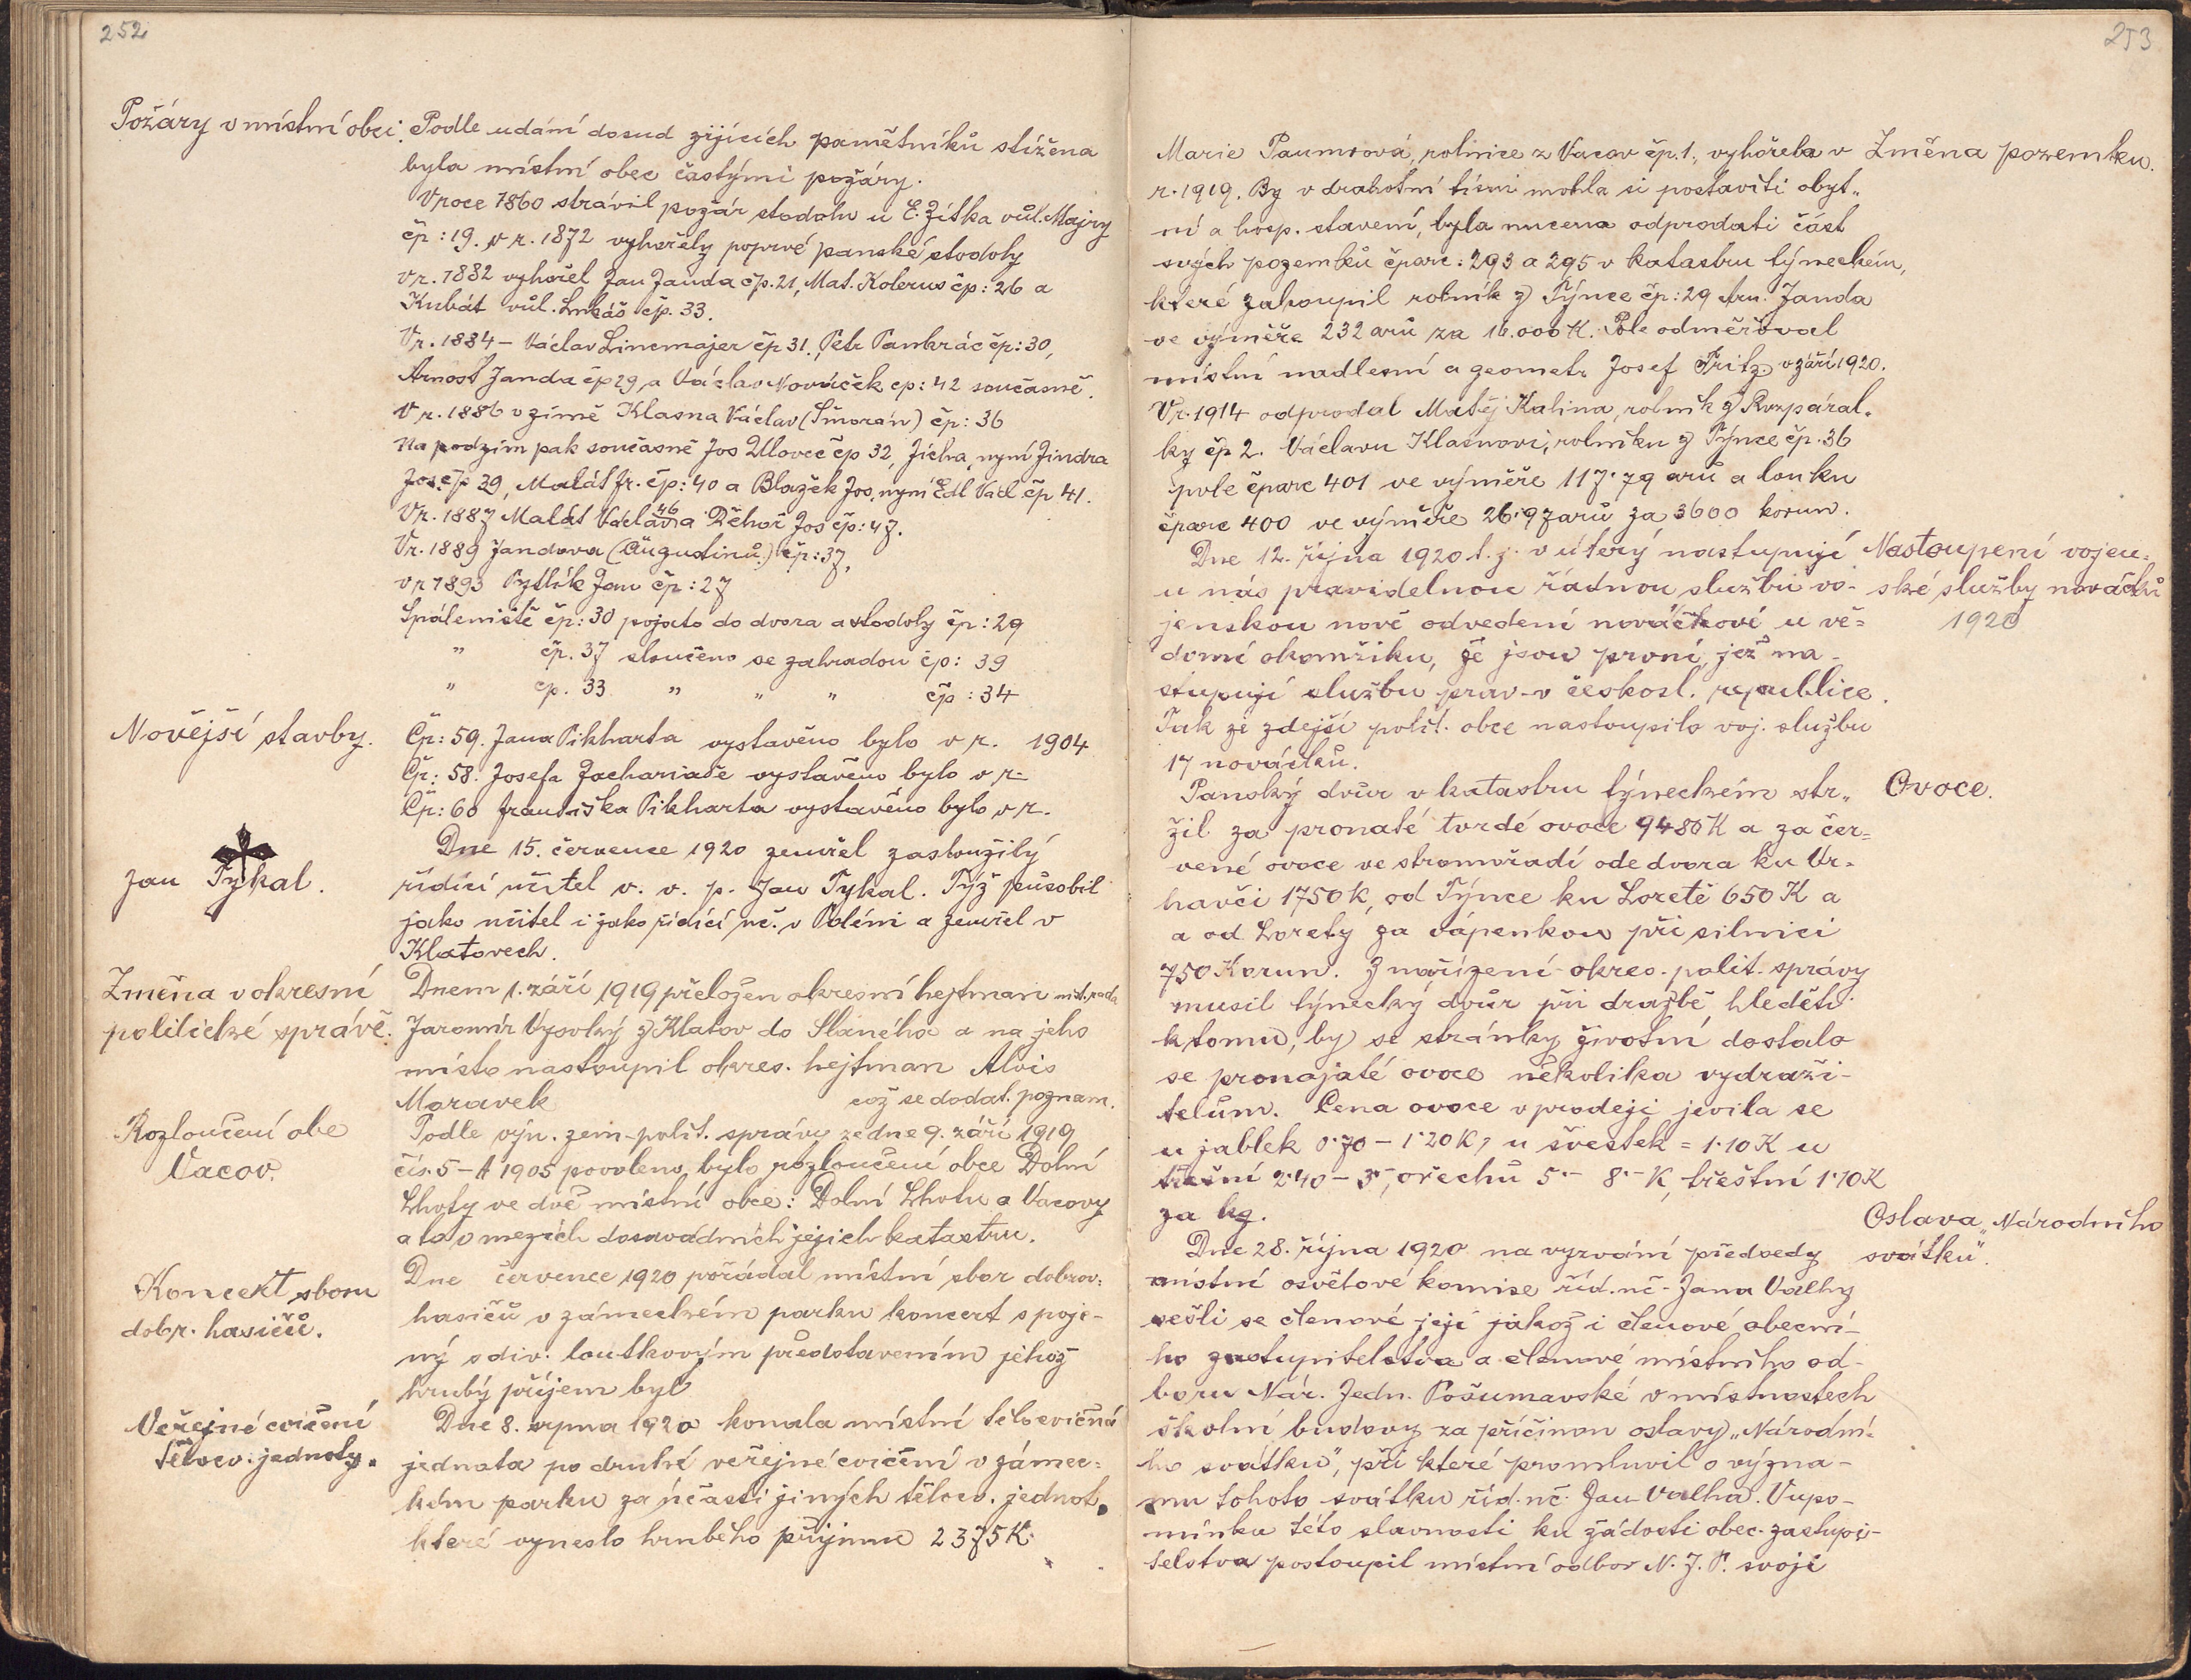 252
Požáry v místní obci.
Podle udání dosud žijících pamětníků stížena
byla místní obec častými požáry.
V roce 1860 strávil požár stodolu u E. Zítka vůl. Majry
čp: 19. V r. 1872 vyhořely poprvé panské stodoly
v r. 1882 vyhořel Jan Janda čp. 21, Mat. Kolerus čp: 26 a
Kubát vůl. Lukáš čp. 33.
V r. 1884 – Václav Linemajer čp 31., Petr Pankrác čp: 30,
Arnošt Janda čp 29, a Václav Nováček čp: 42 současně.
V r. 1886 v zimě Klasna Václav (Šmorán) čp: 36
Na podzim pak současně Jos Ulovec čp 32, Jícha, nyní Jindra
Jos. čp 39, Malát Fr. čp: 40 a Blažek Jos. nyní Edl Václ čp 41.
V r. 1887 Malát Václav 46 a Děhoř Jos čp: 47.
V r. 1889 Jandova (Augustinů.) čp: 37,
v r 1893 Pytlík Jan čp: 27
Spáleniště čp: 30 pojato do dvora a stodoly čp: 29
" čp. 37 sloučeno se zahradou čp: 39
" čp. 33 " " " čp: 34
Novější stavby.
Čp: 59. Jana Pikharta vystavěno bylo v r. 1904
Čp: 58. Josefa Zachariaše vystavěno bylo v r.
Čp: 60 Františka Pikharta vystavěno bylo v r.
Jan Tykal.
Dne 15. července 1920 zemřel zasloužilý
řídící učitel v. v. p. Jan Tykal. Týž působil
jako učitel i jako řídící uč. v Poléni a zemřel v
Klatovech.
Změna v okresní
politické správě.
Dnem 1. září 1919 přeložen okresní hejtman míst. rada
Jaromír Vysoký z Klatov do Slaného a na jeho
místo nastoupil okres. hejtman Alois
Maravek což se dodat. poznam.
Rozloučení obe
Vacov.
Podle výn. zem-polit. správy ze dne 9. září 1919
čís. 5-A 1905 povoleno bylo rozloučení obce Dolní
Lhoty ve dvě místní obce: Dolní Lhotu a Vacovy
a to v mezích dosavadních jejich katastru.
Koncert sboru
dobr. hasičů.
Dne července 1920 pořádal místní sbor dobrov.
hasičů v zámeckém parku koncert spoje-
ný s div. loutkovým představením jehož
hrubý příjem byl
Veřejné cvičení
tělocv. jednoty.
Dne 8. srpna 1920 konala místní tělocvičná
jednota po druhé veřejné cvičení v zámec-
kém parku za účasti jiných tělocv. jednot,
které vyneslo hrubého příjmu 2375 K.
253
Marie Paumrová, rolnice z Vacov čp. 1., vyhořela v
Změna pozemku.
r. 1919. By v drahotní tísni mohla si postaviti obyt-
ní a hosp. stavení, byla nucena odprodati část
svých pozemků čparc: 293 a 295 v katastru týneckém,
které zakoupil rolník z Týnce čp: 29 Arn. Janda
ve výměře 232 arů za 16.000 K. Pole odměřoval
místní nadlesní a geometr Josef Fritz v září 1920.
V r. 1914 odprodal Matěj Kalina, rolník z Rozpáral-
ky čp 2. Václavu Klasnovi, rolníku z Týnce čp. 36
pole čparc 401 ve výměře 117.79 arů a louku
čparc 400 ve výměře 26.97 arů za 3600 korun.
Dne 12. října 1920 t. j. v úterý nastupují
Nastoupení vojen-
ské služby nováčků
1920
u nás pravidelnou řádnou službu vo-
jenskou nově odvedení nováčkové u vě-
domí okamžiku, že jsou první, jež na-
stupují službu prav. v českosl. republice.
Tak ze zdejší polit. obce nastoupilo voj. službu
17 nováčků.
Ovoce.
Panský dvůr v katastru týneckém str-
žil za pronaté tvrdé ovoce 9486 K a za čer-
vené ovoce ve stromořadí ode dvora ku Vr-
havči 1750 K, od Týnce ku Loretě 650 K a
a od Lorety za vápenkou při silnici
750 Korun. Z nařízení okres. polit. správy
musil týnecký dvůr při dražbě hleděti
k tomu, by se stránky životní dostalo
se pronajaté ovoce několika vydraži-
telům. Cena ovoce v prodeji jevila se
u jablek 0.70 – 1.20 K, u švestek = 1.10 K u
třešní 2.40 – 3.–, ořechů 5.– 8.– K, třešní 1.10 K
za kg.
Oslava „Národního
svátku".
Dne 28. října 1920 na vyzvání předsedy
místní osvětové komise říd. uč. Jana Valhy
sešli se členové její jakož i členové obecní-
ho zastupitelstva a členové místního od-
boru Nár. Jedn. Pošumavské v místnostech
školní budovy za příčinou oslavy „Národní-
ho svátku", při které promluvil o význa-
mu tohoto svátku říd. uč. Jan Valha. Vupo-
mínku této slavnosti ku žádosti obec. zastupi-
telstva postoupil místní odbor N. J. P. svoji